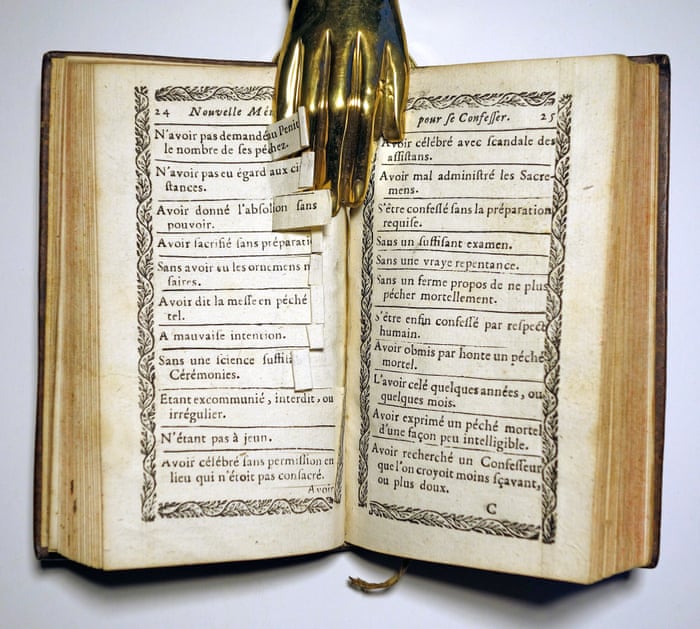 24 Nouvelle Mé
N'avoir pas demandé au Penit
le nombre de ſes péchez.
N'avoir pas eu égard aux cir
ſtances.
Avoir donné l'abſolution ſans
pouvoir.
Avoir ſacrifié ſans préparati
Sans avoir eu les ornemens n
ſaires.
Avoir dit la meſſe en péché
tel.
A mauvaiſe intention.
Sans une ſcience ſuffiſ
Cérémonies.
Etant excommunié, interdit, ou
irrégulier.
N'étant pas à jeun.
Avoir célébré ſans permiſſion en
lieu qui n'étoit pas conſacré.
Avoir
pour ſe Confeſſer. 25
Avoir célébré avec ſcandale des
aſſiſtans.
Avoir mal adminiſtré les Sacre-
mens.
S'être confeſſé ſans la préparation
requiſe.
Sans un ſuffiſant examen.
Sans une vraye repentance.
Sans un ferme propos de ne plus
pécher mortellement.
S'être enfin confeſſé par reſpect
humain.
Avoir obmis par honte un péché
mortel.
L'avoir celé quelques années, ou
quelques mois.
Avoir exprimé un péché mortel
d'une façon peu intelligible.
Avoir recherché un Confeſſeur
que l'on croyoit moins ſçavant,
ou plus doux.
C